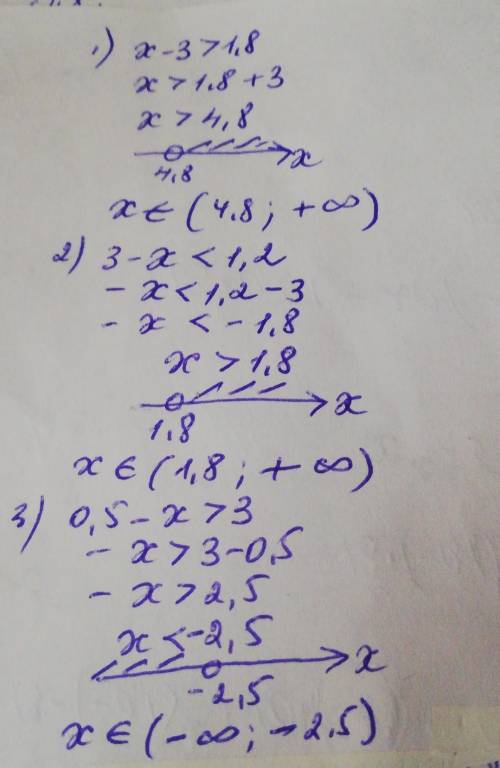 1) x - 3 > 1,8
x > 1.8 + 3
x > 4,8
x
4,8
x ∈ (4.8 ; + ∞)
2) 3 - x < 1,2
- x < 1,2 - 3
- x < - 1,8
x > 1,8
x
1,8
x ∈ (1,8 ; + ∞)
3) 0,5 - x > 3
- x > 3 - 0,5
- x > 2,5
x < -2,5
x
-2,5
x ∈ (- ∞ ; - 2.5)